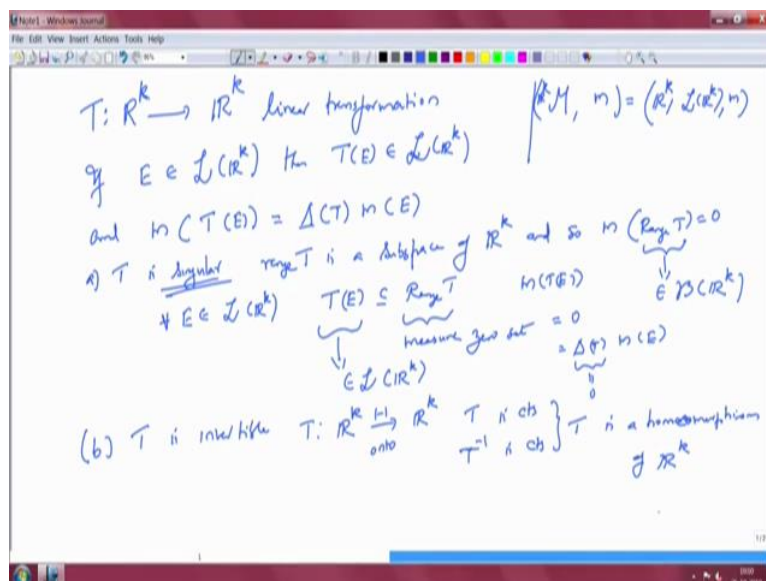 Note1 - Windows Journal
File Edit View Insert Actions Tools Help
T: R^k → ℝ^k linear transformation
(ℝ^k, M, m) = (ℝ^k, L(ℝ^k), m)
If E ∈ L(ℝ^k) then T(E) ∈ L(ℝ^k)
and m(T(E)) = Δ(T) m(E)
a) T is singular range T is a subspace of ℝ^k and so m(Range T) = 0
∈ B(ℝ^k)
∀ E ∈ L(ℝ^k) T(E) ⊆ Range T m(T(E))
measure zero set = 0
= Δ(T) m(E)
0
∈ L(ℝ^k)
(b) T is invertible T: ℝ^k 1-1 → onto ℝ^k T is cts
T^-1 is cts } T is a homeomorphism
of ℝ^k